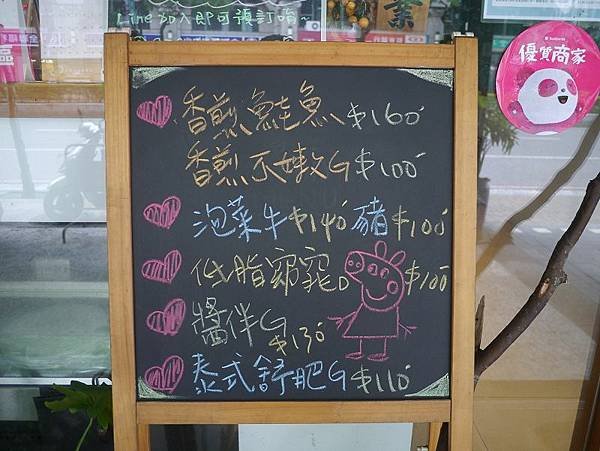 Line加入即可預訂唷~
優質商家
香煎鮭魚$160
香煎不嫩G$100
泡菜牛$140 豬$100
低脂窈窕D $100
醬伴G
$130
泰式舒肥G$110